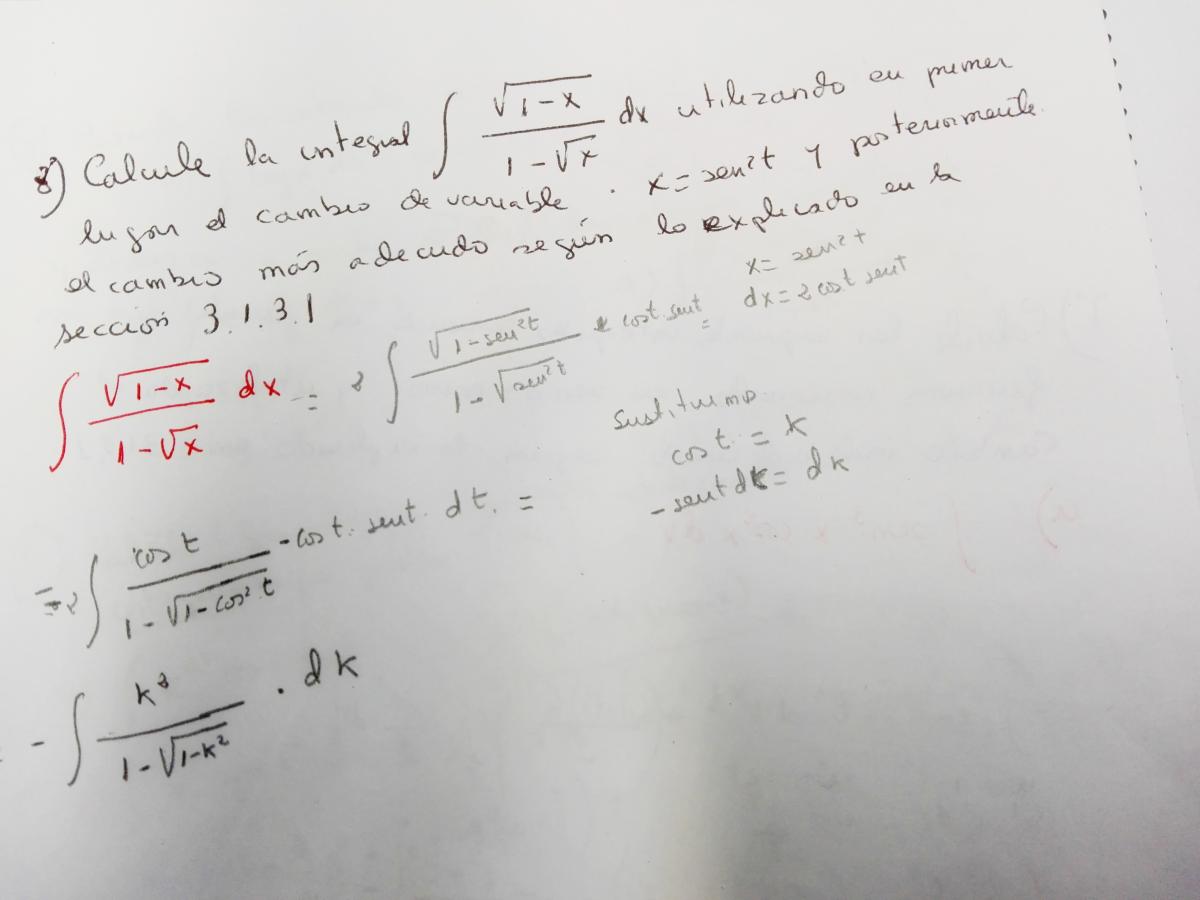 8) Calcule la integral ∫ √(1-x) / (1-√x) dx utilizando en primer
lugar el cambio de variable x = sen²t y posteriormente
el cambio más adecuado según lo explicado en la
sección 3.1.3.1
x = sen²t
dx = 2 cost sent
∫ √(1-x) / (1-√x) dx = 2 ∫ √(1-sen²t) / (1-√sen²t) cost. sent =
sustituimos
cos t = k
-sent dk = dk
= 2 ∫ cos t / (1-√(1-cos²t)) - cos t. sent. dt. =
- ∫ k² / (1-√(1-k²)) . dk